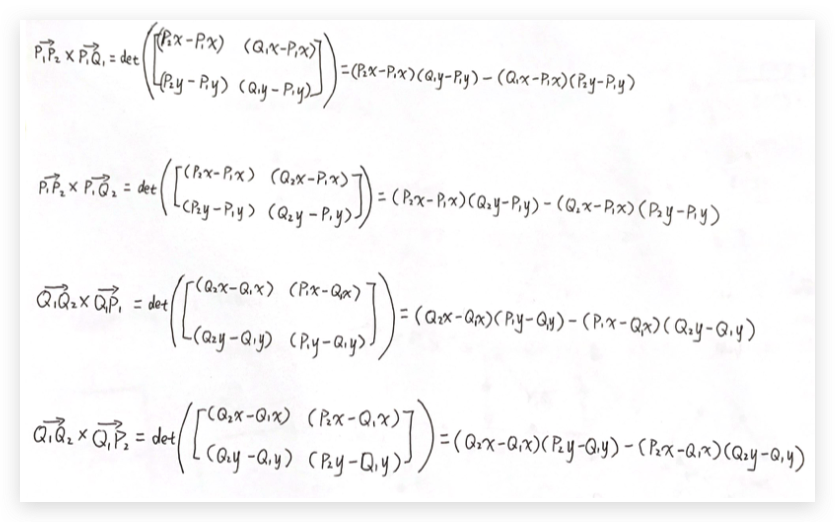 $\overrightarrow{P_1P_2} \times \overrightarrow{P_1Q_1} = \det\left(\begin{bmatrix}(P_2x-P_1x) & (Q_1x-P_1x)\\(P_2y-P_1y) & (Q_1y-P_1y)\end{bmatrix}\right) = (P_2x-P_1x)(Q_1y-P_1y)-(Q_1x-P_1x)(P_2y-P_1y)$
$\overrightarrow{P_1P_2} \times \overrightarrow{P_1Q_2} = \det\left(\begin{bmatrix}(P_2x-P_1x) & (Q_2x-P_1x)\\(P_2y-P_1y) & (Q_2y-P_1y)\end{bmatrix}\right) = (P_2x-P_1x)(Q_2y-P_1y)-(Q_2x-P_1x)(P_2y-P_1y)$
$\overrightarrow{Q_1Q_2} \times \overrightarrow{Q_1P_1} = \det\left(\begin{bmatrix}(Q_2x-Q_1x) & (P_1x-Q_1x)\\(Q_2y-Q_1y) & (P_1y-Q_1y)\end{bmatrix}\right) = (Q_2x-Q_1x)(P_1y-Q_1y)-(P_1x-Q_1x)(Q_2y-Q_1y)$
$\overrightarrow{Q_1Q_2} \times \overrightarrow{Q_1P_2} = \det\left(\begin{bmatrix}(Q_2x-Q_1x) & (P_2x-Q_1x)\\(Q_2y-Q_1y) & (P_2y-Q_1y)\end{bmatrix}\right) = (Q_2x-Q_1x)(P_2y-Q_1y)-(P_2x-Q_1x)(Q_2y-Q_1y)$